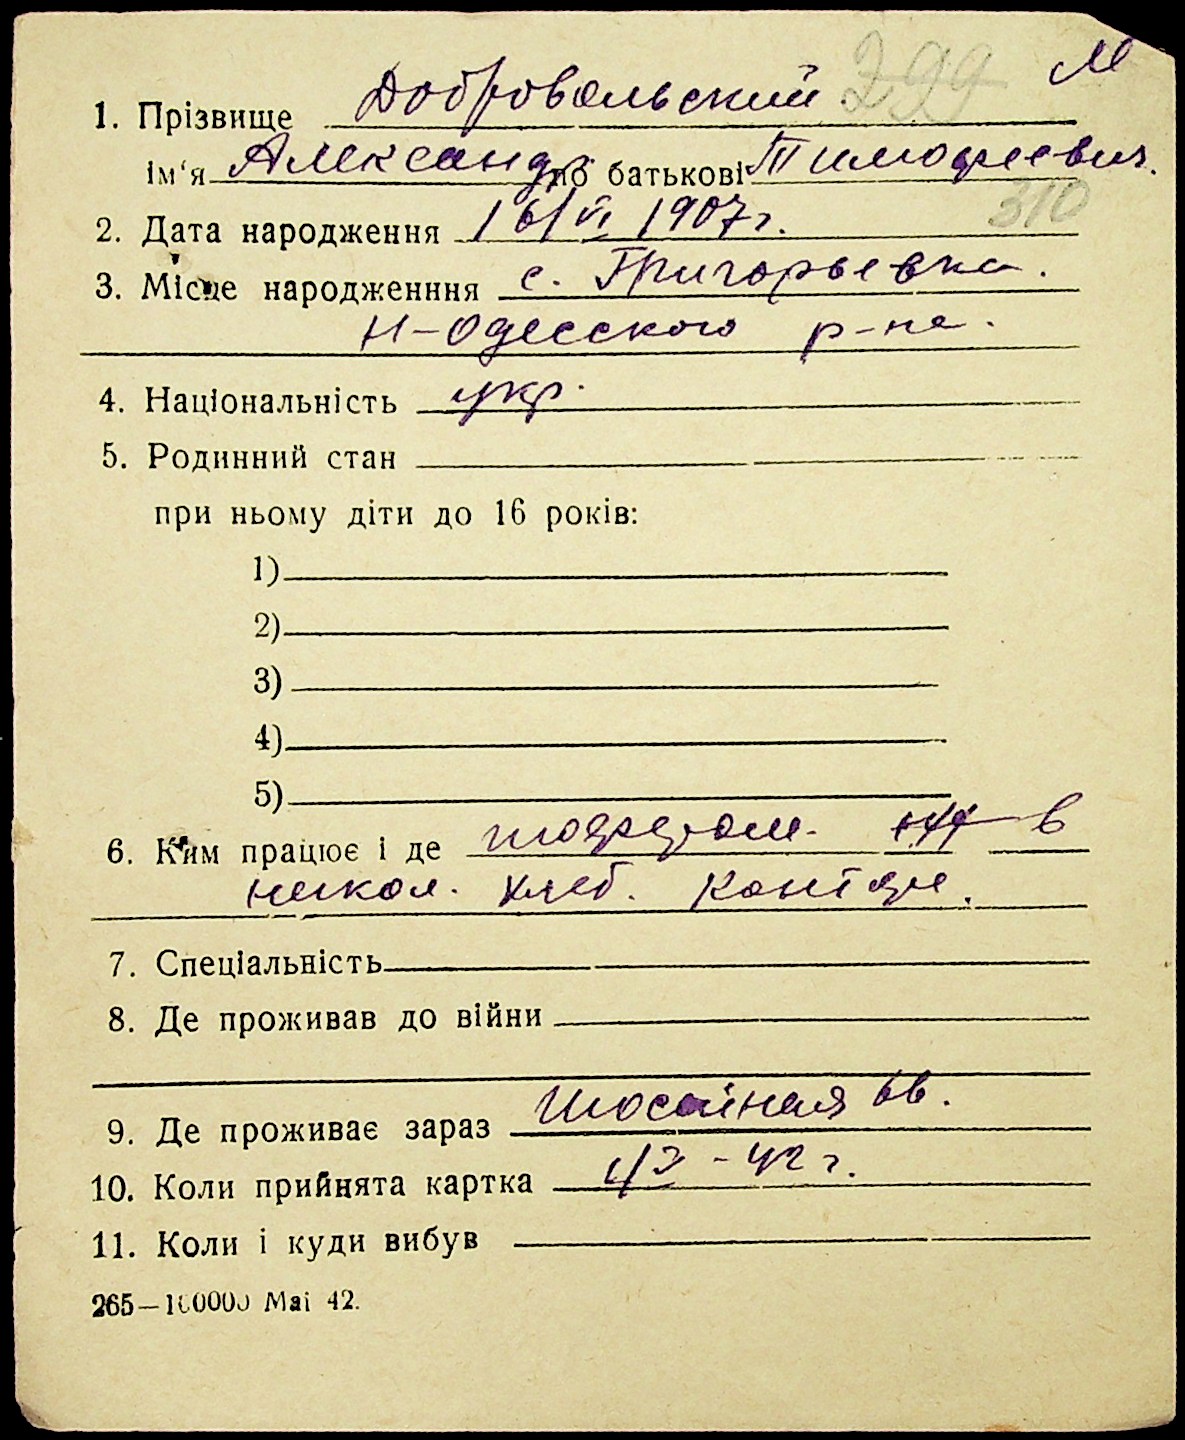 299 М
1. Прізвище Добровольский
ім'я Александр по батькові Тимофеевич.
310
2. Дата народження 16/VI 1907 г.
3. Місце народженння с. Григорьевка.
Н-Одесского р-на.
4. Національність укр.
5. Родинний стан
при ньому діти до 16 років:
1)
2)
3)
4)
5)
6. Ким працює і де в
никол. хлеб. конторе.
7. Спеціальність
8. Де проживав до війни
9. Де проживає зараз 6в.
10. Коли прийнята картка -42 г.
11. Коли і куди вибув
265—100000 Mai 42.